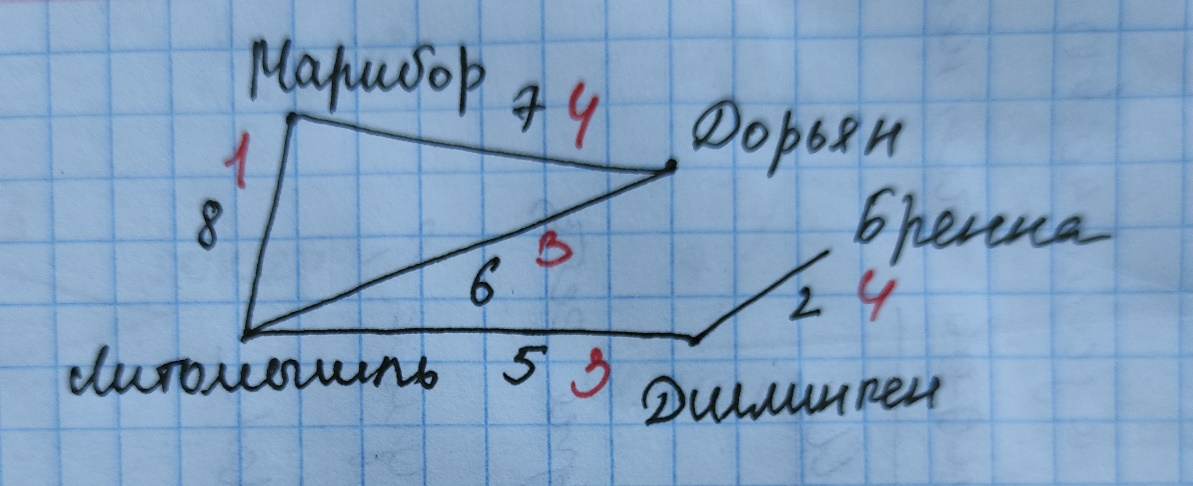 Марибор
7 4
Дорьян
1
8
Бренна
3
6
2 4
Литомышль 5 3
Диллинген